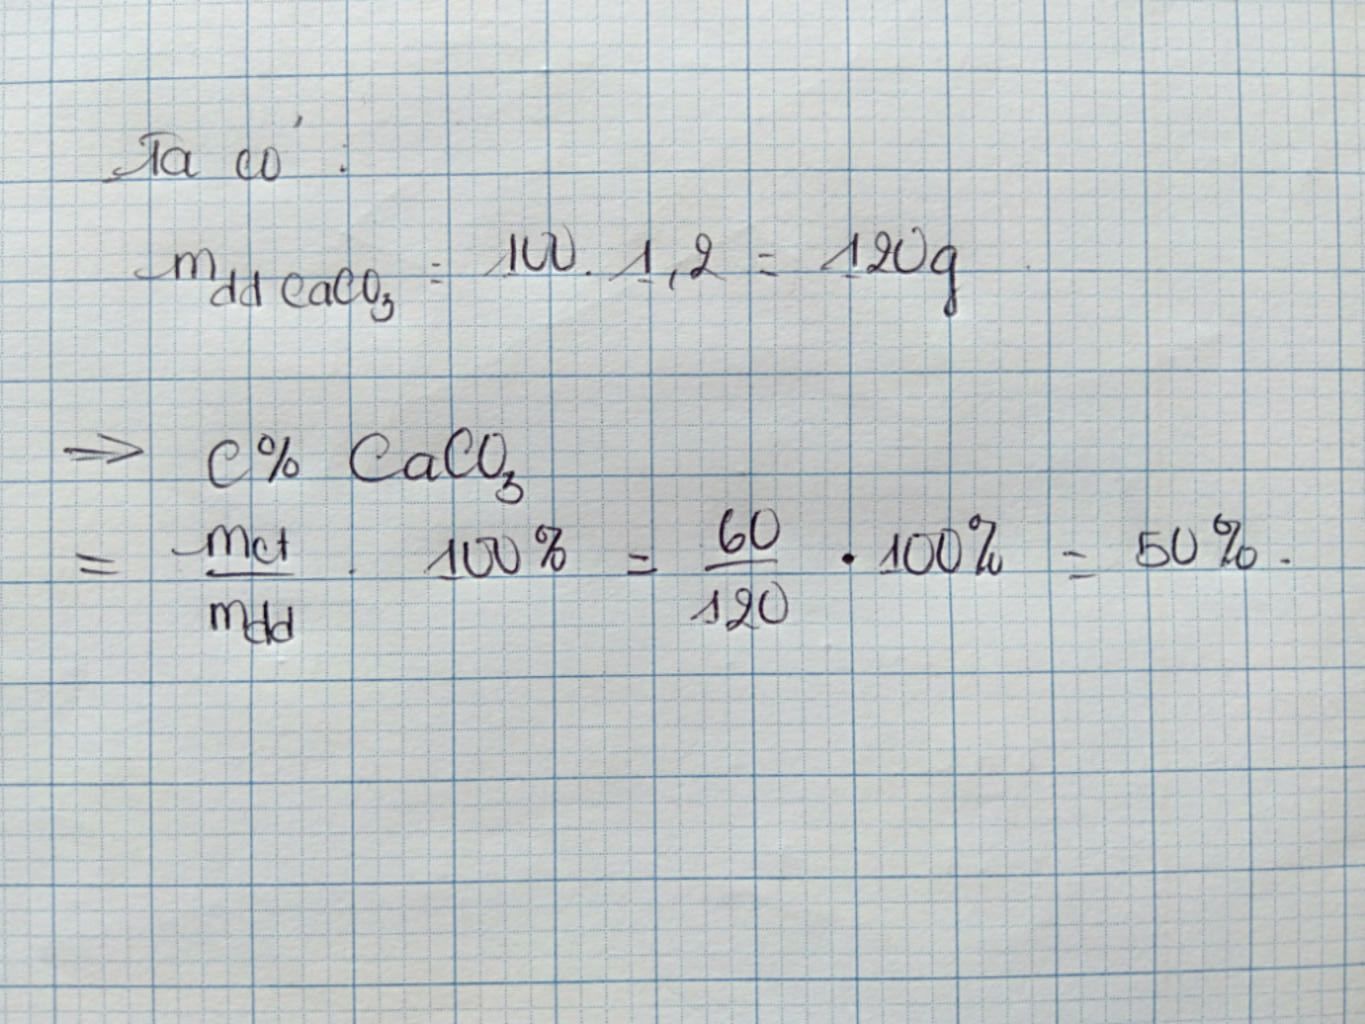 Ta có :
mdd CaCO3 = 100. 1,2 = 120g
⇒ C% CaCO3
= mct/mdd . 100% = 60/120 . 100% = 50%.